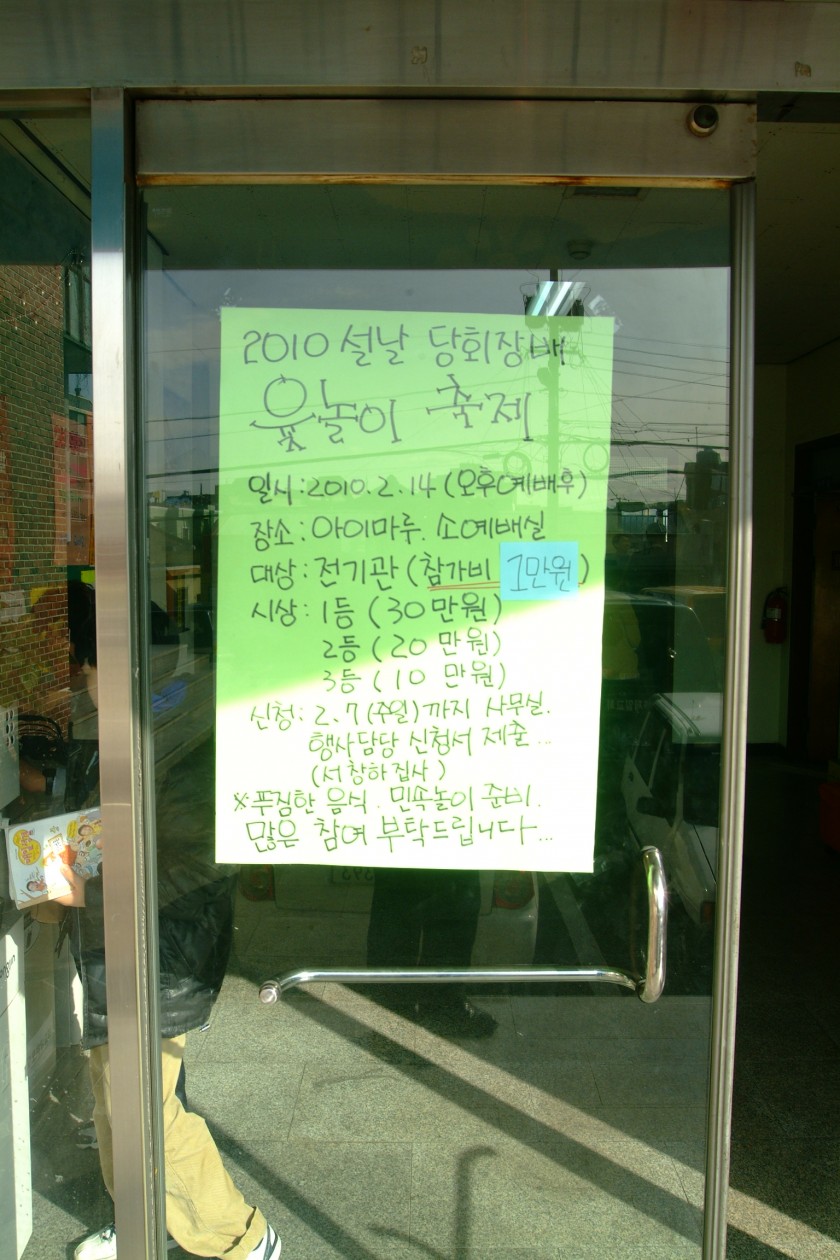 2010 설날 당회장배
윷놀이 축제
일시:2010.2.14(오후예배후)
장소:아이마루. 소예배실
대상:전기관(참가비 1만원)
시상: 1등 (30만원)
2등 (20만원)
3등 (10만원)
신청: 2.7(주일)까지 사무실.
행사담당 신청서 제출...
(서창하집사)
※푸짐한 음식. 민속놀이 준비.
많은 참여 부탁드립니다...